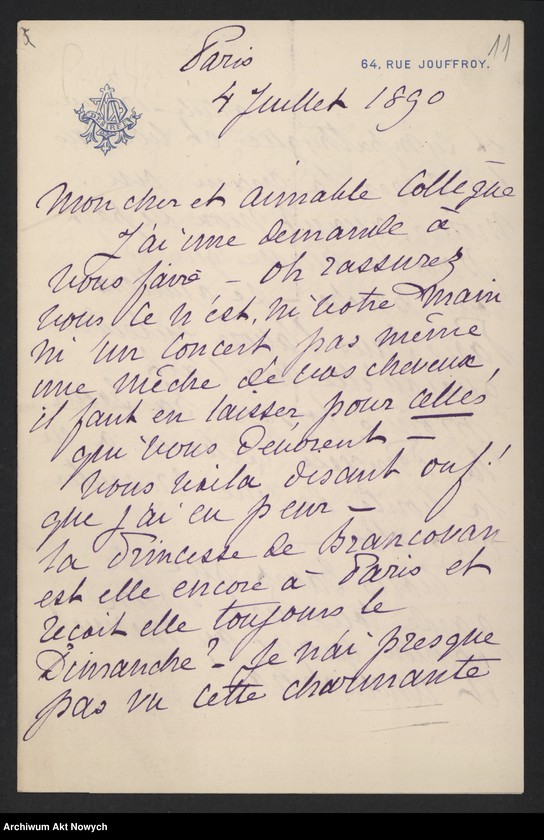 11
Paris
64, RUE JOUFFROY.
4 Juillet 1890
Mon cher et aimable Collègue
J'ai une demande à
vous faire – oh rassurez
vous ce n'est, ni votre main
ni un Concert pas même
une mèche de vos cheveux,
il faut en laisser pour celles
qui vous dévorent –
Vous voilà disant ouf!
que j'ai eu peur –
la Princesse de Brancovan
est elle encore à Paris et
reçoit elle toujours le
Dimanche? – Je n'ai presque
pas vu cette charmante
Archiwum Akt Nowych